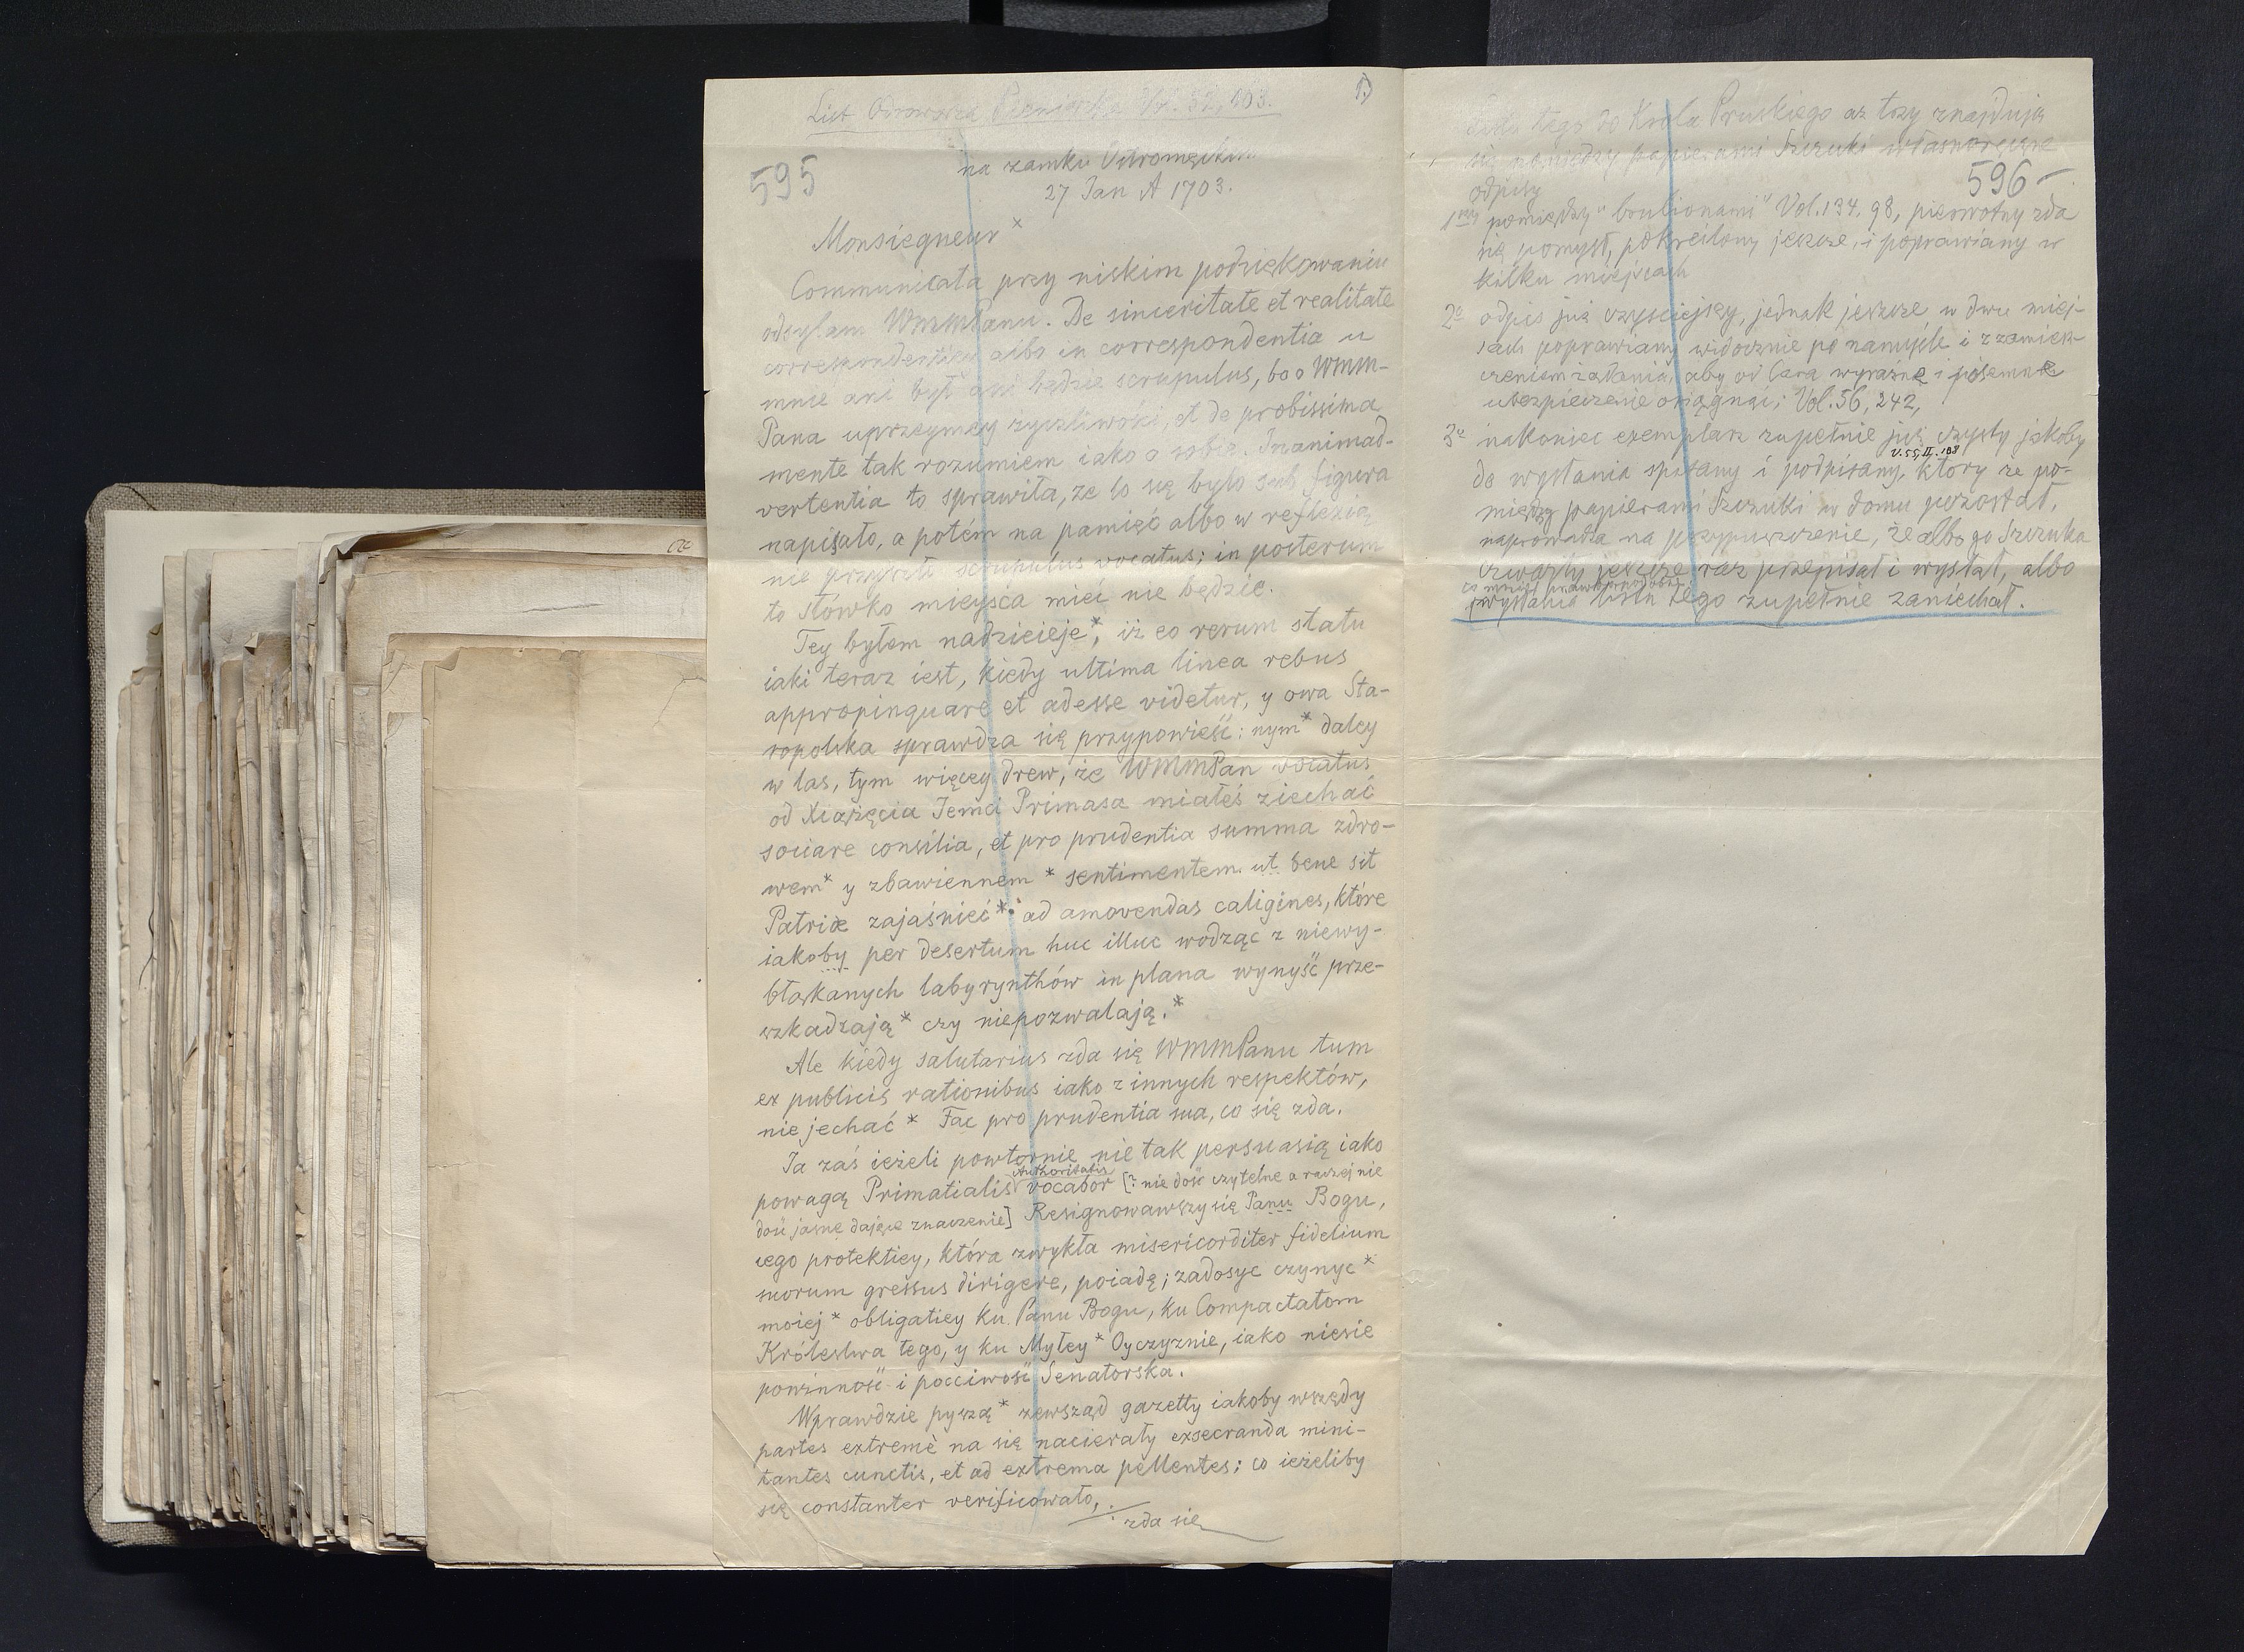 1)
List Odrowąża Pieniążka Vol. 52, 103.
595
na zamku Ostromęckim
27 Jan A 1703.
Monsiegneur*
Communicata przy niskim podziękowaniu
odsyłam WMMPanu. De sinceritate et realitate
correspondentiae albo in correspondentia u
mnie ani był ani będzie scrupulus, bo o WMM-
Pana uprzeymey życzliwości, et de probissima
mente tak rozumiem iako o sobie. Inanimad-
vertentia to sprawiła, że to się było sub figura
napisało, a potém na pamięć albo w reflexią
nie przyszło scrupulus vocatus; in posterum
to słówko mieysca mieć nie będzie.
Tey byłem nadzieieje*, iż eo rerum statu
iaki teraz iest, kiedy ultima linea rebus
appropinquare et adesse videtur, y owa Sta-
ropolska sprawdza się przypowieść: nym* daley
w las, tym więcey drew, że WMMPan vocatus
od Xiążęcia Jemci Primasa miałeś ziechać
sociare consilia, et pro prudentia summa zdro-
wem* y zbawiennem* sentimentem ut bene sit
Patriæ zajaśnieć* ad amovendas caligines, które
iakoby per desertum huc illuc wodząc z niewy-
błąkanych labyrynthów in plana wynyść prze-
szkadzają* czy niepozwalają.*
Ale kiedy salutarius zda się WMMPanu tum
ex publicis rationibus iako z innych respektów,
nie jechać* Fac pro prudentia sua, co się zda.
Ja zaś ieżeli powtornie nie tak persuasią iako
Authoritatis
powagą Primatialis vocabor [? nie dość czytelne a raczej nie
dość jasne dające znaczenie] Resignowawszy się Panu Bogu,
iego protektiey, która zwykła misericorditer fidelium
suorum gressus dirigere, poiadę; zadosyc czynyc*
moiej* obligatiey ku Panu Bogu, ku Compactatom
Królestwa tego, y ku Myłey* Oyczyznie, iako niesie
powinność i pocciwość Senatorska.
Wprawdzie pyszą* zewsząd gazetty iakoby wszędy
partes extremè na się nacierały exsecranda mini-
tantes cunctis, et ad extrema pellentes; co ieżeliby
się constanter verificowało,
zda się
Listu tego do Króla Pruskiego aż trzy znajdują
się pomiędzy papierami Szczuki własnoręczne
odpisy
596
1mo pomiędzy "boulionami" Vol. 134. 98, pierwotny zda
się pomysł, pokreślony jeszcze, i poprawiany w
kilku miejscach
2o odpis już czyściejszy, jednak jeszcze w dwu miej-
scach poprawiany widocznie po namyśle i z zamiesz-
czeniem żądania, aby od Cara wyraźne i pisemne
ubezpieczenie osiągnąć; Vol. 56, 242,
3o nakoniec exemplarz zupełnie już czysty jakoby
V. 55, II. 198
do wysłania spisany i podpisany, który że po-
między papierami Szczuki w domu pozostał,
naprowadza na przypuszczenie, że albo go Szczuka
czwarty jeszcze raz przepisał i wysłał, albo
co mniej prawdopodobne
wysłania listu tego zupełnie zaniechał.